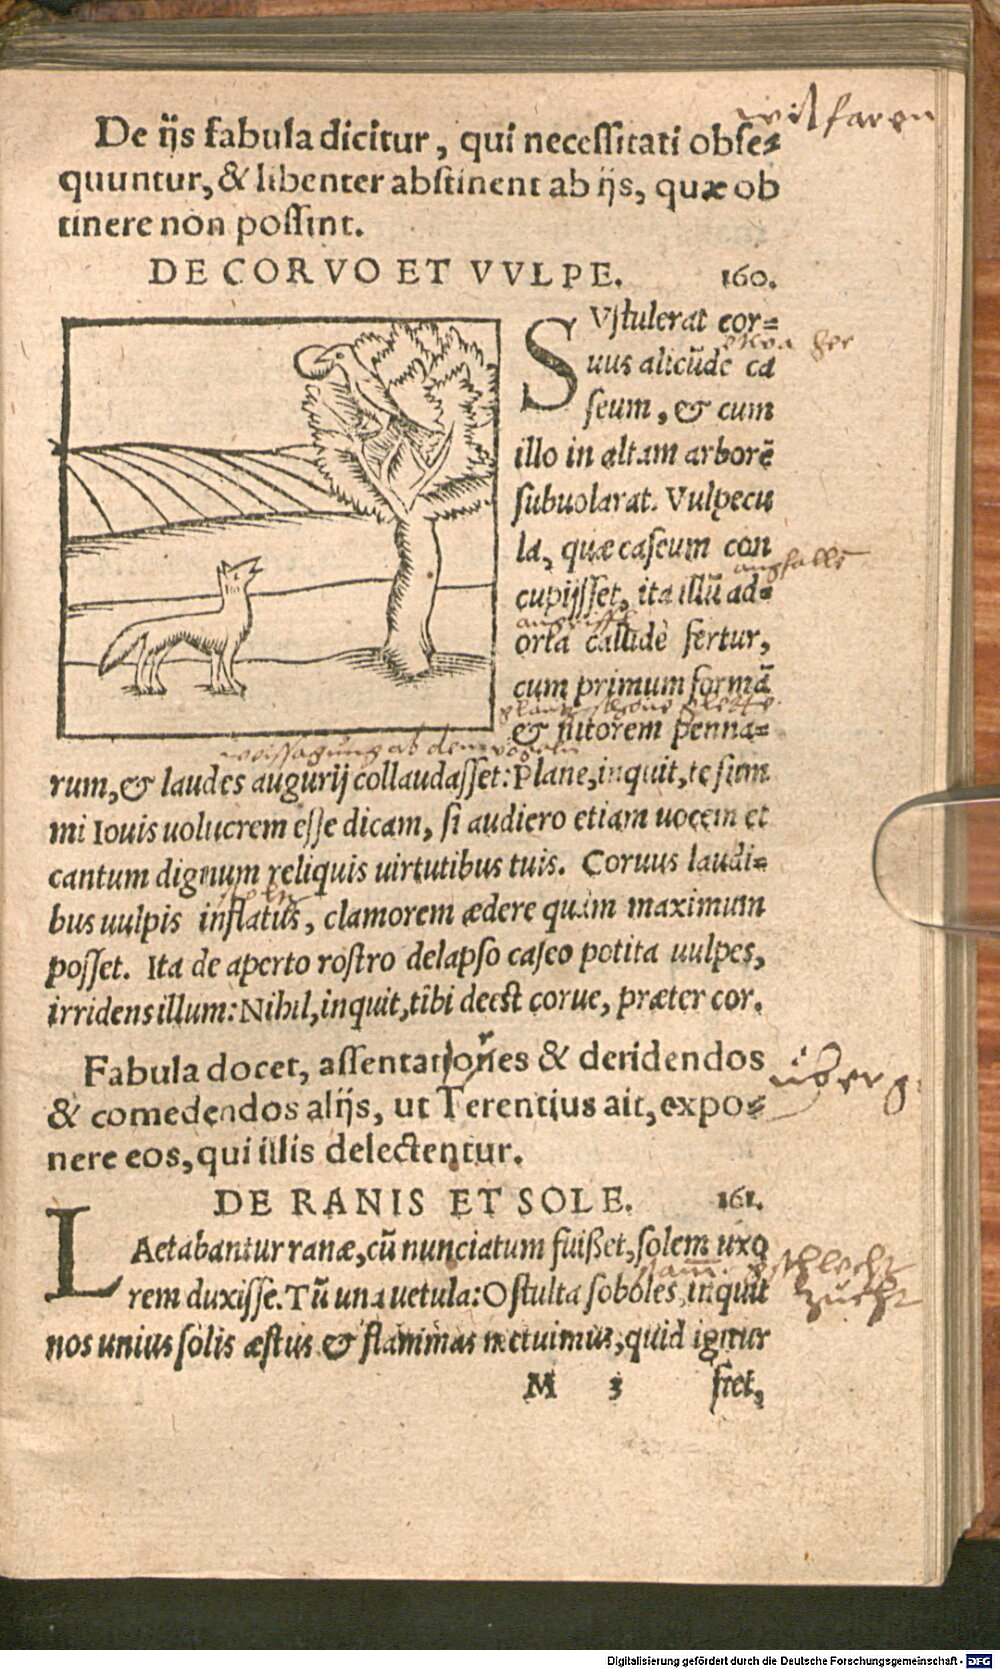 De ijs fabula dicitur, qui necessitati obse-
wilfaren
quuntur, & libenter abstinent ab ijs, quæ ob
tinere non possint.
DE CORVO ET VVLPE. 160.
SVstulerat cor-
uus alicũde ca
seum, & cum
illo in altam arborẽ
subuolarat. Vulpecu
la, quæ caseum con
cupijsset, ita illũ ad-
orta callide fertur,
cum primum formã
& nitorem penna-
weissagung ab dem vögeln
rum, & laudes augurij collaudasset: Plane, inquit, te sum
mi Iouis uolucrem esse dicam, si audiero etiam uocem et
cantum dignum reliquis uirtutibus tuis. Coruus laudi-
bus uulpis inflatus, clamorem ædere quàm maximum
posset. Ita de aperto rostro delapso caseo potita uulpes,
irridens illum: Nihil, inquit, tibi deest corue, præter cor.
Fabula docet, assentationes & deridendos
& comedendos alijs, ut Terentius ait, expo-
nere eos, qui illis delectentur.
DE RANIS ET SOLE. 161.
LAetabantur ranæ, cũ nunciatum fuißet, solem uxo
schlecht
rem duxisse. Tũ una uetula: O stulta soboles, inquit
zucht
nos unius solis æstus & flammas metuimus, quid igitur
M 3 fiet,
Digitalisierung gefördert durch die Deutsche Forschungsgemeinschaft - DFG